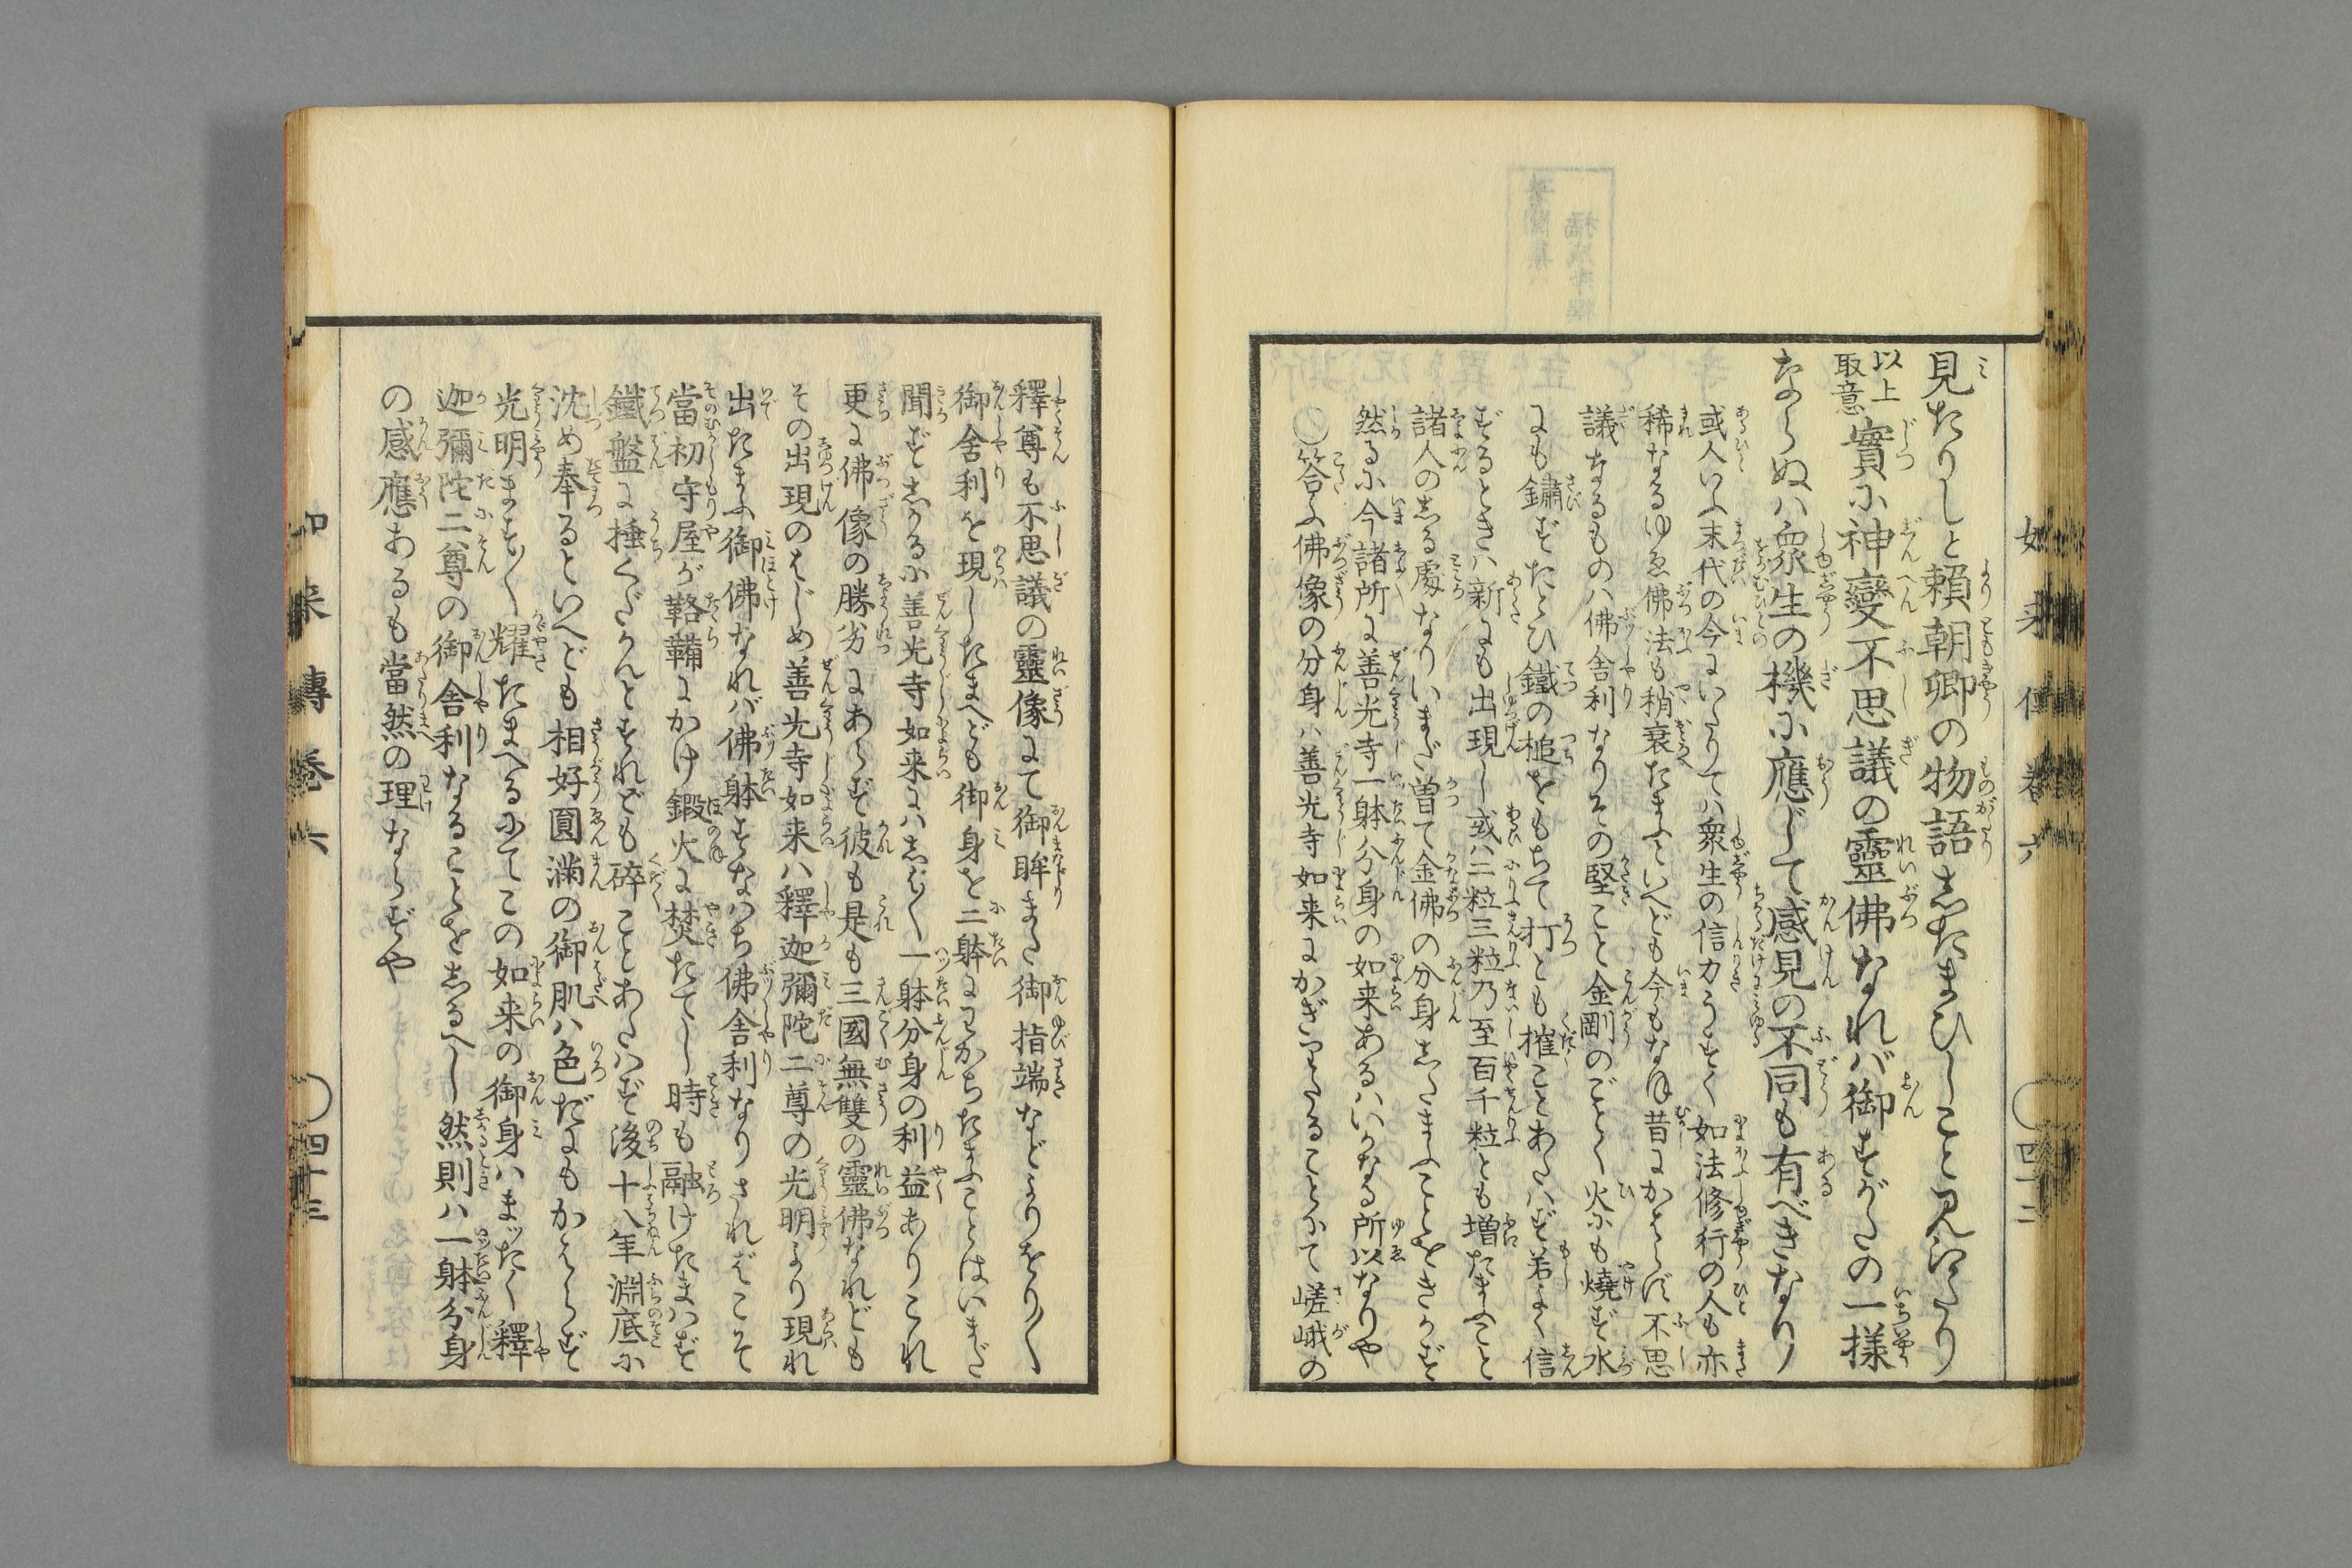 見たりしと頼朝卿の物語したまひしこと見えたり
以上
取意
實に神變不思議の靈佛なれバ御すがたの一様
ならぬハ衆生の機に應じて感見の不同も有べきなり
或人いふ末代の今にいたりてハ衆生の信力うすく如法修行の人も亦
稀なるゆゑ佛法も稍衰たまふといへども今もなほ昔にかはらバ不思
議なるものハ佛舎利なりその堅こと金剛のごとく火にも焼ず水
にも鏽ずたとひ鐵の槌をもちて打とも摧ことあたハず若よく信
ずるときハ新にも出現し或ハ二粒三粒乃至百千粒とも増たまふこと
諸人のしる處なりいまだ曽て金佛の分身したまふことをきかず
然るに今諸所に善光寺一躰分身の如来あるハいかなる所以なりや
○答ふ佛像の分身ハ善光寺如来にかぎりたることにて嵯峨の
釋尊も不思議の靈像にて御眸また御指端などよりをり〳〵
御舎利を現したまへども御身を二躰にわかちたまふことはいまだ
聞ずしかるに善光寺如来にハしば〳〵一躰分身の利益ありこれ
更に佛像の勝劣にあらず彼も是も三國無雙の靈佛なれども
その出現のはじめ善光寺如来ハ釋迦彌陀二尊の光明より現れ
出たまふ御佛なれバ佛躰すなハち佛舎利なりさればこそ
當初守屋が鞴にかけ鍛火に焚たてし時も融けたまハず
鐵盤に捶くだかんとすれども碎ことあたハず後十八年淵底に
沈め奉るといへども相好圓滿の御肌ハ色だにもかはらず
光明ます〳〵耀たまへるにてこの如来の御身ハまッたく釋
迦彌陀二尊の御舎利なることをしるへし然則ハ一躰分身
の感應あるも當然の理ならずや
如来傳巻六
四十二
如来傳巻六
四十三